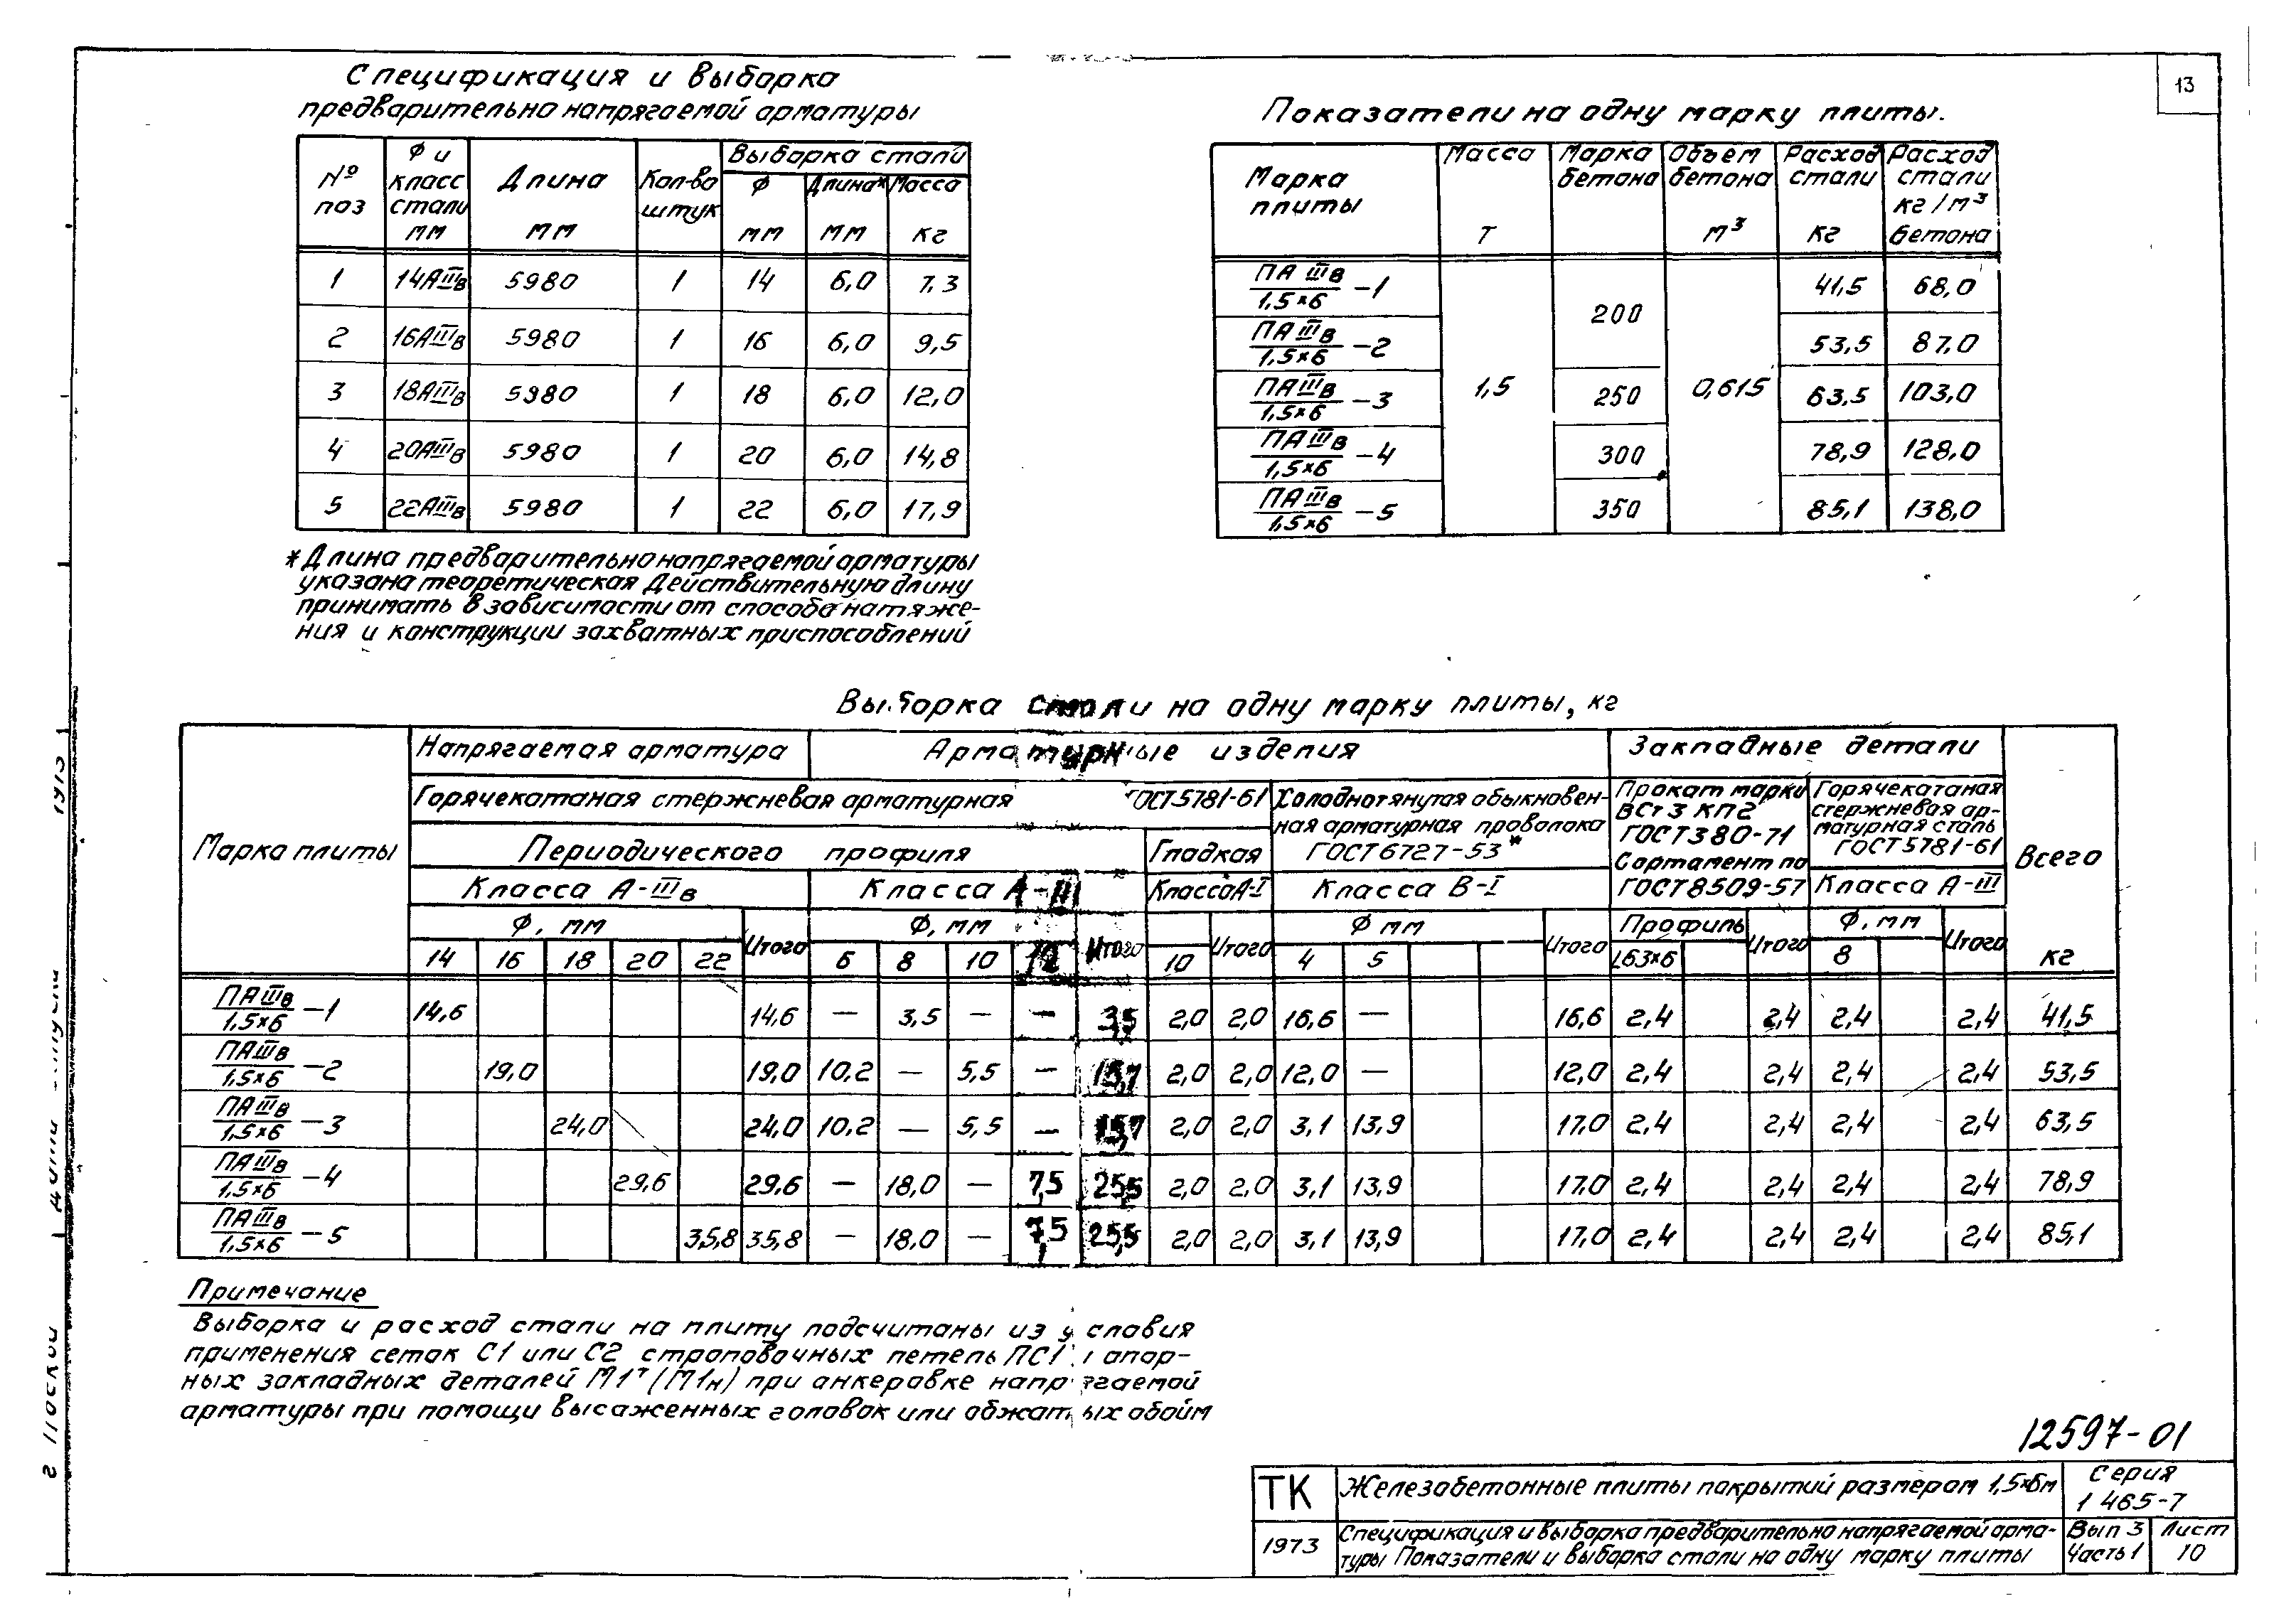 13
Спецификация и выборка
предварительно напрягаемой арматуры
№ поз | Ф и класс стали мм | Длина мм | Кол-во штук | Выборка стали
Ф мм | Длина* мм | Масса кг
1 | 14АIIIв | 5980 | 1 | 14 | 6,0 | 7,3
2 | 16АIIIв | 5980 | 1 | 16 | 6,0 | 9,5
3 | 18АIIIв | 5980 | 1 | 18 | 6,0 | 12,0
4 | 20АIIIв | 5980 | 1 | 20 | 6,0 | 14,8
5 | 22АIIIв | 5980 | 1 | 22 | 6,0 | 17,9
* Длина предварительно напрягаемой арматуры
указана теоретическая Действительную длину
принимать в зависимости от способа натяже-
ния и конструкции захватных приспособлений
Показатели на одну марку плиты.
Марка плиты | Масса Т | Марка бетона | Объем бетона м³ | Расход стали кг | Расход стали кг/м³ бетона
ПАIIIв/1,5×6 -1 | 1,5 | 200 | 0,615 | 41,5 | 68,0
ПАIIIв/1,5×6 -2 | 53,5 | 87,0
ПАIIIв/1,5×6 -3 | 250 | 63,5 | 103,0
ПАIIIв/1,5×6 -4 | 300 | 78,9 | 128,0
ПАIIIв/1,5×6 -5 | 350 | 85,1 | 138,0
Выборка стали на одну марку плиты, кг
Марка плиты | Напрягаемая арматура | Арматурные изделия | Закладные детали | Всего кг
Горячекатаная стержневая арматурная ГОСТ 5781-61 | Холоднотянутая обыкновен-ная арматурная проволока ГОСТ 6727-53* | Прокат марки ВСт 3 КП2 ГОСТ 380-71 Сортамент по ГОСТ 8509-57 | Горячекатаная стержневая ар-матурная сталь ГОСТ 5781-61
Периодического профиля | Гладкая
Класса А-IIIв | Класса А-III | Класса А-I | Класса В-I | Класса А-III
Ф, мм | Итого | Ф, мм | Итого | Итого | Ф мм | Итого | Профиль | Итого | Ф, мм | Итого
14 | 16 | 18 | 20 | 22 | 6 | 8 | 10 | 12 | 10 | 4 | 5 | L63×6 | 8
ПАIIIв/1,5×6 -1 | 14,6 | 14,6 | — | 3,5 | — | — | 3,5 | 2,0 | 2,0 | 16,6 | — | 16,6 | 2,4 | 2,4 | 2,4 | 2,4 | 41,5
ПАIIIв/1,5×6 -2 | 19,0 | 19,0 | 10,2 | — | 5,5 | — | 15,7 | 2,0 | 2,0 | 12,0 | — | 12,0 | 2,4 | 2,4 | 2,4 | 2,4 | 53,5
ПАIIIв/1,5×6 -3 | 24,0 | 24,0 | 10,2 | — | 5,5 | — | 15,7 | 2,0 | 2,0 | 3,1 | 13,9 | 17,0 | 2,4 | 2,4 | 2,4 | 2,4 | 63,5
ПАIIIв/1,5×6 -4 | 29,6 | 29,6 | — | 18,0 | — | 7,5 | 25,5 | 2,0 | 2,0 | 3,1 | 13,9 | 17,0 | 2,4 | 2,4 | 2,4 | 2,4 | 78,9
ПАIIIв/1,5×6 -5 | 35,8 | 35,8 | — | 18,0 | — | 7,5 | 25,5 | 2,0 | 2,0 | 3,1 | 13,9 | 17,0 | 2,4 | 2,4 | 2,4 | 2,4 | 85,1
Примечание
Выборка и расход стали на плиту подсчитаны из условия
применения сеток С1 или С2 строповочных петель ПС1 и опор-
ных закладных деталей М1т (М1н) при анкеровке напрягаемой
арматуры при помощи высаженных головок или обжатых обойм
12597-01
ТК | Железобетонные плиты покрытий размером 1,5×6м | Серия 1 465-7
1973 | Спецификация и выборка предварительно напрягаемой арма-
туры Показатели и выборка стали на одну марку плиты | Вып 3 Часть 1 | Лист 10
г Москва
1973